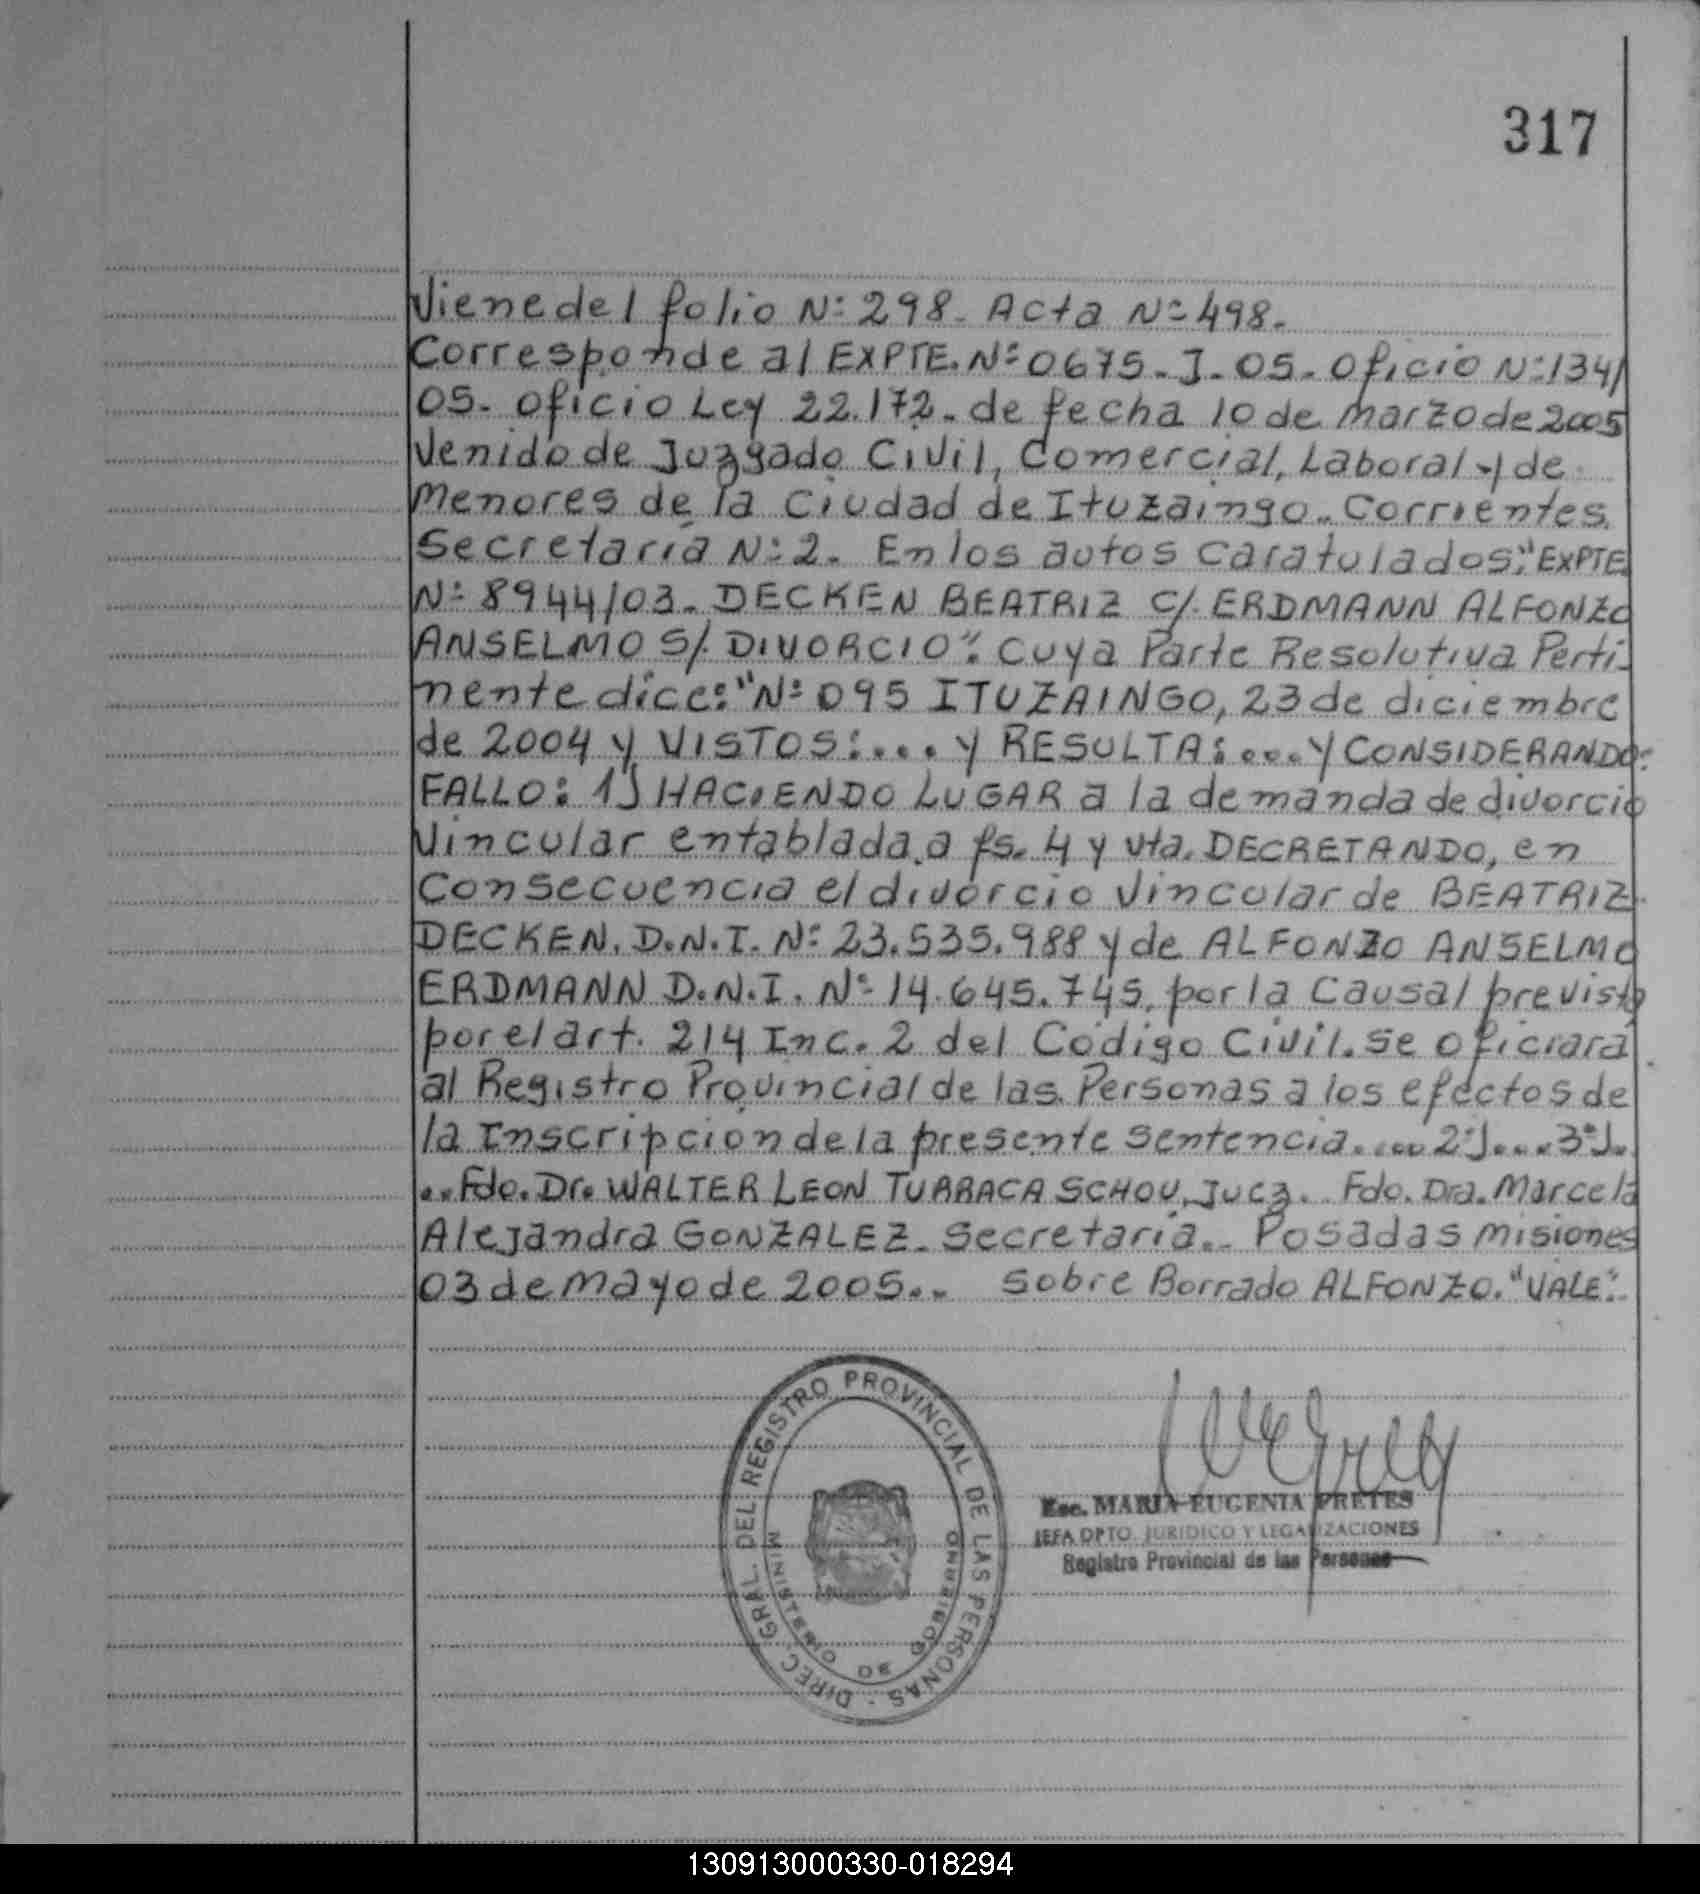 317
Viene del folio Nº 298. Acta Nº 498.
Corresponde al EXPTE. Nº 0675. J. 05. oficio Nº 134/
05. oficio Ley 22.172. de fecha 10 de marzo de 2005
Venido de Juzgado Civil, Comercial, Laboral y de
Menores de la Ciudad de Ituzaingo.. Corrientes.
Secretaría Nº 2. En los autos caratulados; "EXPTE
Nº 8944/03. DECKEN BEATRIZ C/. ERDMANN ALFONZO
ANSELMO S/. DIVORCIO". Cuya Parte Resolutiva Perti-
nente dice: "Nº 095 ITUZAINGO, 23 de diciembre
de 2004 y VISTOS:.... y RESULTA:.... y CONSIDERANDO:
FALLO: 1) HACIENDO LUGAR a la demanda de divorcio
Vincular entablada a fs. 4 y vta. DECRETANDO, en
Consecuencia el divorcio Vincular de BEATRIZ
DECKEN. D.N.I. Nº 23.535.988 y de ALFONZO ANSELMO
ERDMANN D.N.I. Nº 14.645.745. por la Causal prevista
por el art. 214 Inc. 2 del Código Civil. se oficiará
al Registro Provincial de las Personas a los efectos de
la Inscripcion de la presente sentencia..... 2º)....3º).
..Fdo. Dr. WALTER LEON TURRACA SCHOU, Juez. Fdo. Dra. Marcela
Alejandra GONZALEZ. Secretaria.. Posadas misiones
03 de mayo de 2005.. Sobre Borrado ALFONZO. "VALE".
DIREC. GRAL. DEL REGISTRO PROVINCIAL DE LAS PERSONAS
MINISTERIO DE GOBIERNO
Esc. MARIA EUGENIA PRETES
JEFA DPTO. JURIDICO Y LEGALIZACIONES
Registro Provincial de las Personas
130913000330-018294